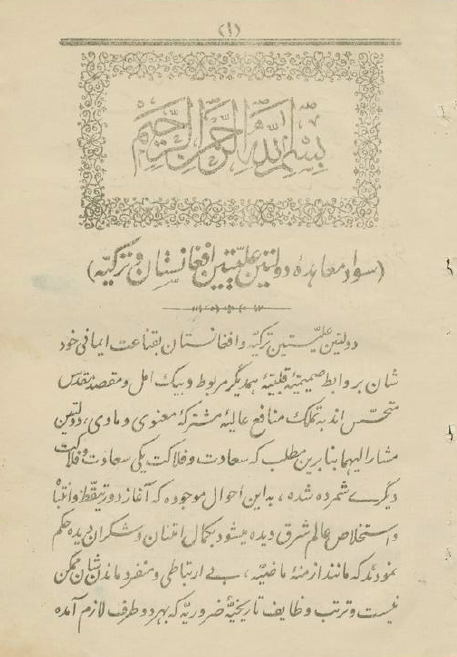 (۱)
بسم الله الرحمن الرحیم
(سواد معاهدۀ دولتین علیتین افغانستان و ترکیه)
دولتین علیتین ترکیه و افغانستان بقناعت ایمانی خود
شان بروابط صمیمیۀ قلبیۀ همدیگر مربوط و بیک امل و مقصد مقدس
متحسس اند به تملک منافع عالیۀ مشترکۀ معنوی و مادی، دولتین
مشار الیهما بنابرین مطلب که سعادت و فلاکت یکی سعادت و فلاکت
دیگرے شمرده شده، به این احوال موجوده که آغاز دور تیقظ و انتباه
و استخلاص عالم شرق دیده میشود بکمال امتنان و شکران دیده حکم
نمودند که مانند ازمنۀ ماضیه، بے ارتباطی و منفرد ماندن شان ممکن
نیست و ترتب وظایف تاریخیۀ ضروریه که بهر دو طرف لازم آمده